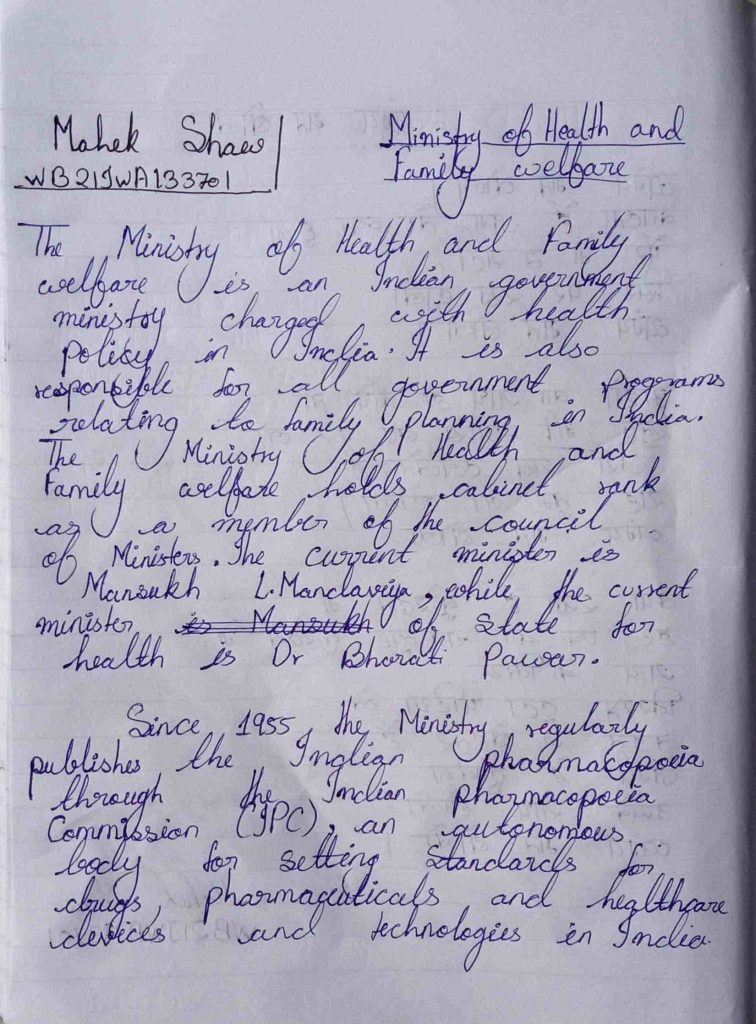 Mahek Shaw
WB21JWA133701
Ministry of Health and
Family welfare
The Ministry of Health and Family
welfare is an Indian government
ministry charged with health
policy in India. It is also
responsible for all government programs
relating to family planning in India.
The Ministry of Health and
Family welfare holds cabinet rank
as a member of the council
of Ministers. The current minister is
Mansukh L. Mandaviya, while the current
minister is Mansukh of State for
health is Dr Bharati Pawar.
Since 1955, the Ministry regularly
publishes the Indian pharmacopoeia
through the Indian pharmacopoeia
Commission (IPC), an autonomous
body for setting standards for
drugs, pharmaceuticals and healthcare
devices and technologies in India.